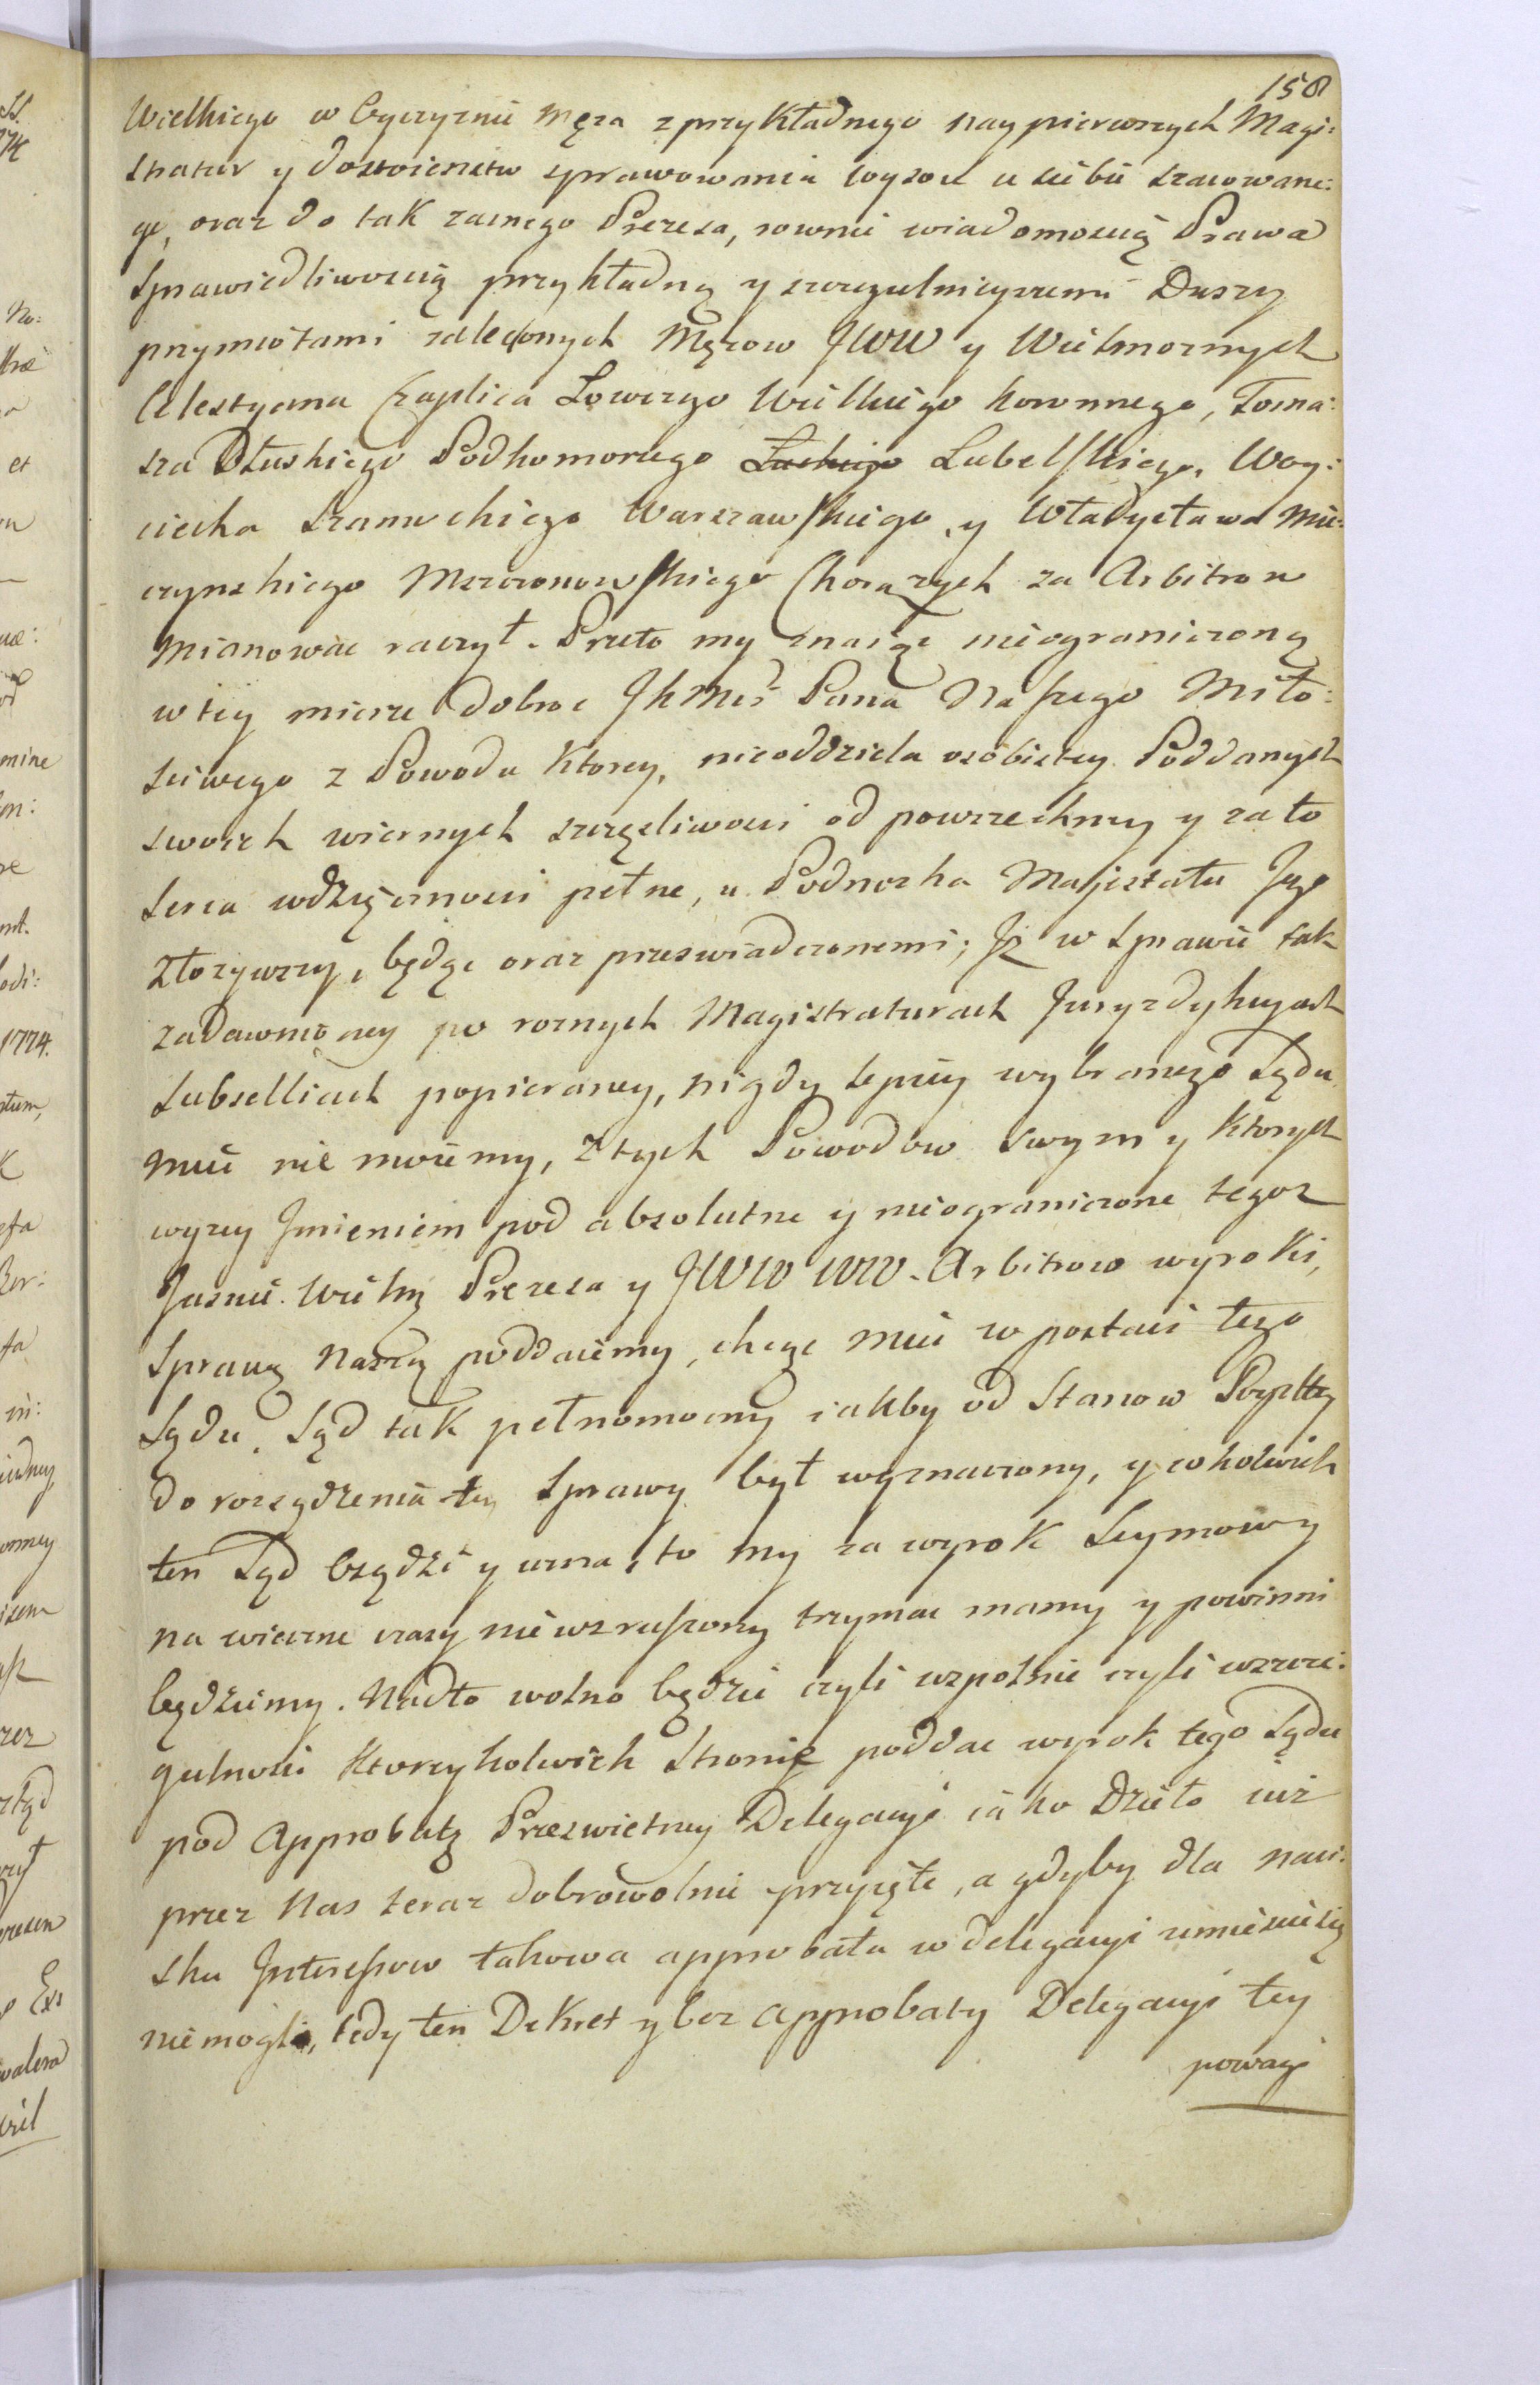 158
Wielkiego w Oyczyznie Męża z przykładnego naypierwszych Magi:
stratur y dostoienstw sprawowania wysoce u siebie szacowane:
go, oraz do tak zacnego Prezesa, rownie wiadomoscią Prawa
Sprawiedliwoscią przykładną y szczegulnieyszemi Duszy
przymiotami zaleconych Mężow JWW y Wielmoznych
Celestyna Czaplica Łowczego Wielkiego Koronnego, Toma:
sza Dłuskiego Podkomorzego Lubelskiego, Woy:
ciecha Szamockiego Warszawskiego, y Władysława Mie:
czynskiego Mszczonowskiego Chorązych za Arbitrow
mianowac raczył. Przeto my znaiąc nieograniczoną
w tey mierze dobroc JKMci Pana Naszego Miło:
sciwego z Powodu Ktorey, nieoddziela osobistey Poddanych
swoich wiernych szczęsliwosci od powszechney y za to
serca wdzięcznosci pełne, u Podnozka Majestatu Jego
złozywszy, będąc oraz przeswiadczonemi; Jz w Sprawie tak
zadawnioney po roznych Magistraturach Juryzdykcyach
Subselliach popieraney, nigdy lepiey wybranego Sądu
miec nie mozemy, z tych Powodow swym y Ktorych
wyzey Jmieniem pod absolutne y nieograniczone tegoz
Jasnie Wielm Prezesa y JWW WW. Arbitrow wyroki,
Sprawę naszą poddaiemy, chcąc miec w postaci tego
Sądu, Sąd tak pełnomocny iakby od Stanow Rzpltey
do rozsądzenia tey Sprawy był wyznaczony, y cokolwiek
ten Sąd osądzi y uzna, to my za wyrok Seymowy
na wieczne czasy niewzruszony trzymac mamy y powinni
będziemy. Nadto wolno będzie czyli wspolnie czyli wszcze:
gulnosci Ktoreykolwiek Stronie poddac wyrok tego Sądu
pod Approbatę Przeswietney Delegacyi iako Dzieło iuż
przez Nas teraz dobrowolnie przyięte, a gdyby dla naci:
sku Jnteressow takowa approbata w delegacyi umiescic się
niemogła, tedy ten Dekret y bez approbaty Delegacyi tey
powagi